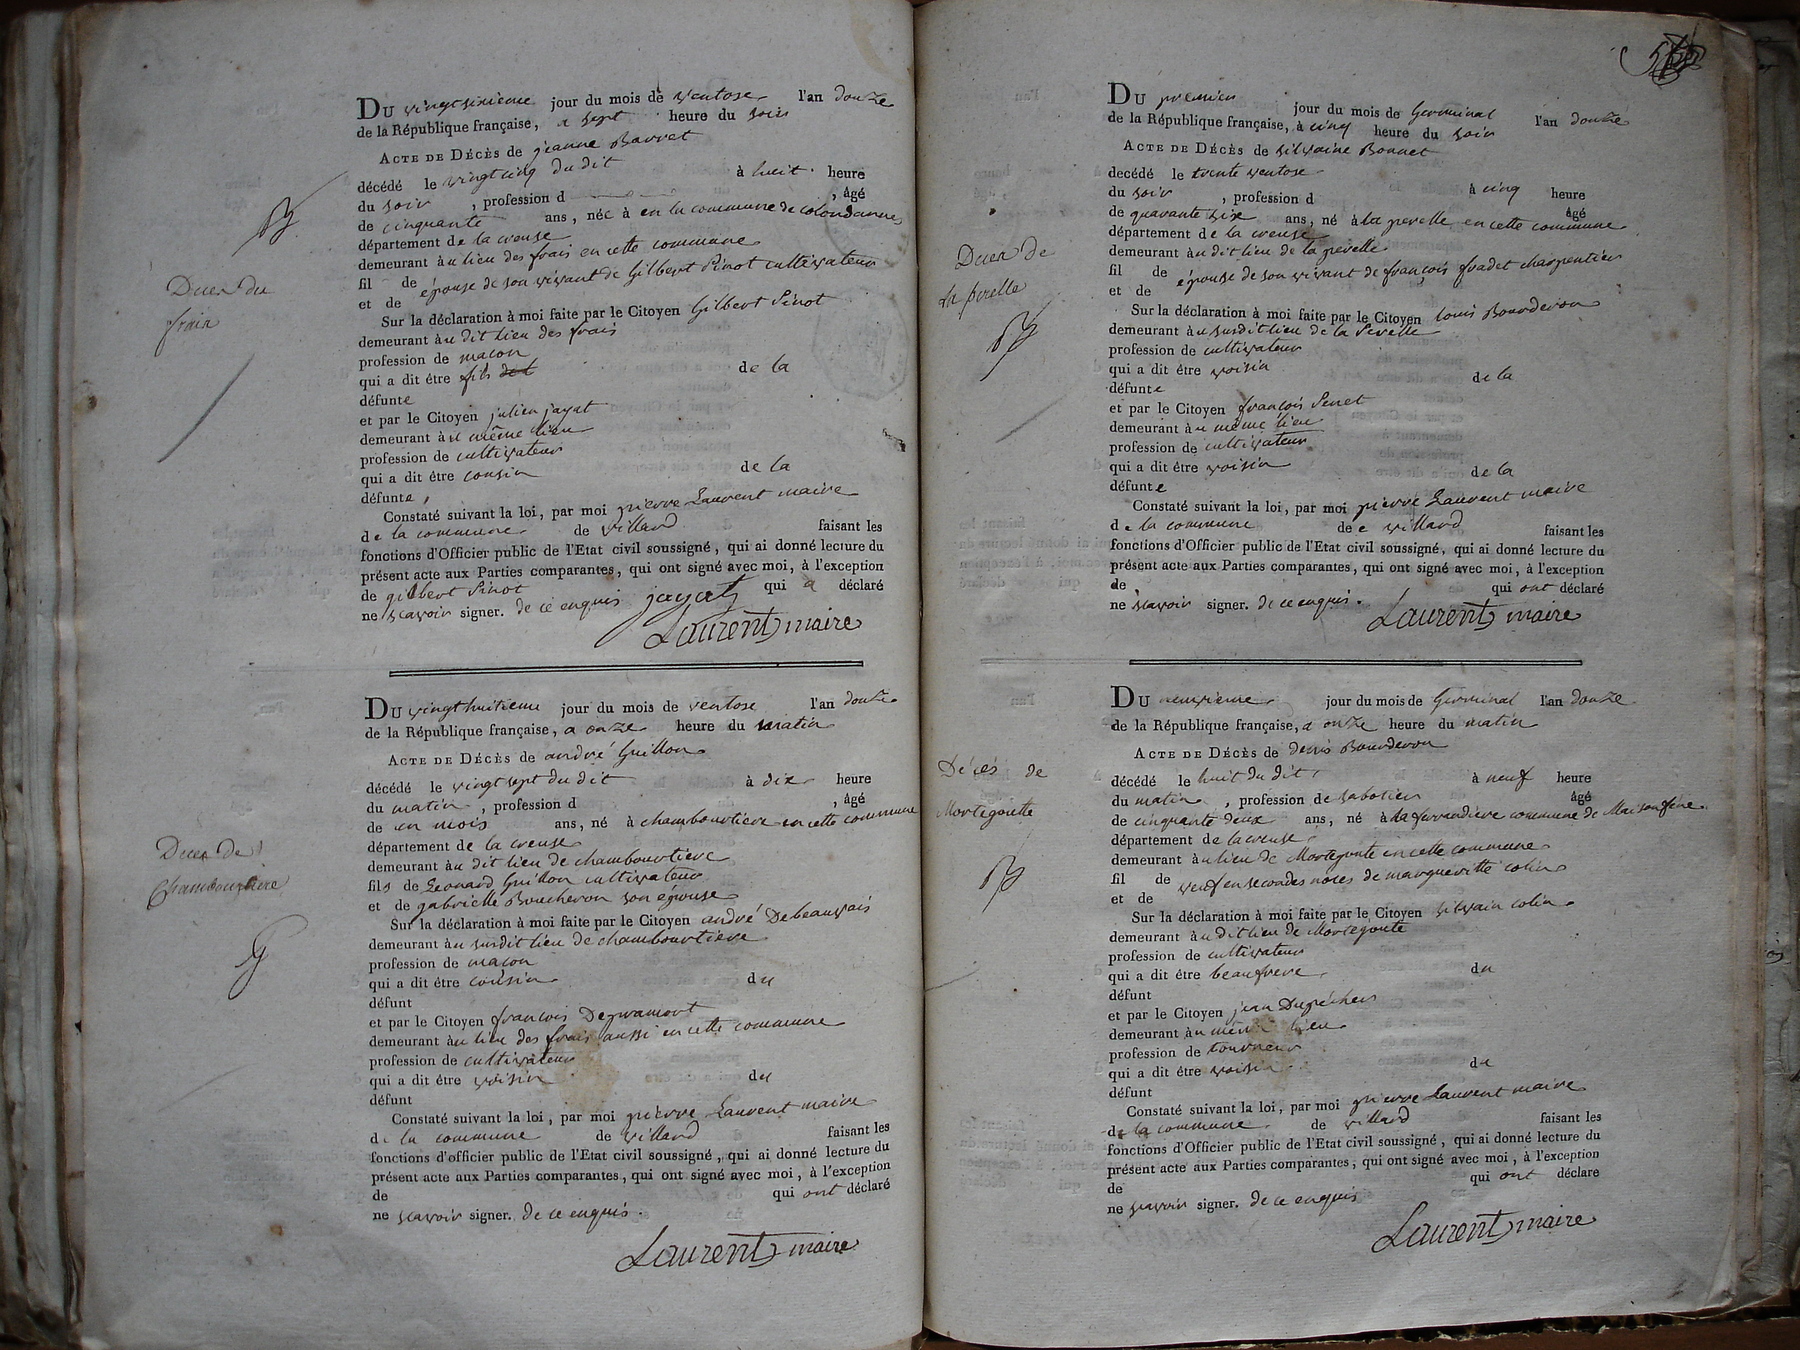 Du vingtsixieme jour du mois de ventose l'an douze
de la République française, a sept heure du soir
Acte de Décès de jeanne Barret
décédé le vingtcinq du dit à huit heure
du soir , profession d , âgé
de cinquante ans, née à en la commune de colondannes
département de la creuse
demeurant au lieu des frais en cette commune
fil de épouse de son vivant de Gilbert Pinot cultivateur
et de
Sur la déclaration à moi faite par le Citoyen Gilbert Pinot
demeurant au dit lieu des frais
profession de macon
qui a dit être fils de la
défunte
et par le Citoyen julien jayat
demeurant au même lieu
profession de cultivateur
qui a dit être cousin de la
défunte,
Constaté suivant la loi, par moi pierre Laurent maire
de la commune de villard faisant les
fonctions d'Officier public de l'Etat civil soussigné, qui ai donné lecture du
présent acte aux Parties comparantes, qui ont signé avec moi, à l'exception
de gilbert Pinot qui a déclaré
ne scavoir signer. de ce enquis jayat
Laurent maire
Deces du
frais
Du vingthuitieme jour du mois de ventose l'an douze
de la République française, a onze heure du matin
Acte de Décès de andré Guillon
décédé le vingt sept du dit à dix heure
du matin , profession d , âgé
de un mois ans, né à chambourtiere en cette commune
département de la creuse
demeurant au dit lieu de chambourtiere
fils de Leonard Guillon cultivateur
et de gabrielle Boucheron son épouse
Sur la déclaration à moi faite par le Citoyen andré Debeauvais
demeurant au susdit lieu de chambourtiere
profession de macon
qui a dit être cousin du
défunt
et par le Citoyen francois
demeurant au lieu des frais aussi en cette commune
profession de cultivateur
qui a dit être voisin du
défunt
Constaté suivant la loi, par moi pierre Laurent maire
de la commune de villard faisant les
fonctions d'officier public de l'Etat civil soussigné, qui ai donné lecture du
présent acte aux Parties comparantes, qui ont signé avec moi, à l'exception
de qui ont déclaré
ne scavoir signer. de ce enquis.
Laurent maire
Deces de
Chambourtiere
Du premier jour du mois de Germinal l'an douze
de la République française, à cinq heure du soir
Acte de Décès de silvaine Bonnet
decédé le trente ventose à cinq heure
du soir , profession d âgé
de quarante six ans, né à la perelle en cette commune
département de la creuse
demeurant au dit lieu de la perelle
fil de épouse de son vivant de françois fradet charpentier
et de
Sur la déclaration à moi faite par le Citoyen louis Bourderon
demeurant au susdit lieu de la Perelle
profession de cultivateur
qui a dit être voisin de la
défunte
et par le Citoyen françois Penet
demeurant au meme lieu
profession de cultivateur
qui a dit être voisin de la
défunte
Constaté suivant la loi, par moi pierre Laurent maire
de la commune de villard faisant les
fonctions d'Officier public de l'Etat civil soussigné, qui ai donné lecture du
présent acte aux Parties comparantes, qui ont signé avec moi, à l'exception
de qui ont déclaré
ne scavoir signer. de ce enquis.
Laurent maire
Deces de
la perelle
Du neuvieme jour du mois de Germinal l'an douze
de la République française, a onze heure du matin
Acte de Décès de denis Bourderon
décédé le huit du dit à neuf heure
du matin , profession de sabotier âgé
de cinquante deux ans, né à la ferrandiere commune de Maisonfeine
département de la creuse
demeurant au lieu de Mortegoute en cette commune
fil de veuf en secondes noces de margueritte colin
et de
Sur la déclaration à moi faite par le Citoyen silvain colin
demeurant au dit lieu de Mortegoute
profession de cultivateur
qui a dit être beaufrere du
défunt
et par le Citoyen jean Dupécher
demeurant au même lieu
profession de tourneur
qui a dit être voisin du
défunt
Constaté suivant la loi, par moi pierre Laurent maire
de la commune de villard faisant les
fonctions d'Officier public de l'Etat civil soussigné, qui ai donné lecture du
présent acte aux Parties comparantes, qui ont signé avec moi, à l'exception
de qui ont déclare
ne scavoir signer. de ce enquis
Laurent maire
Décés de
Mortegoutte